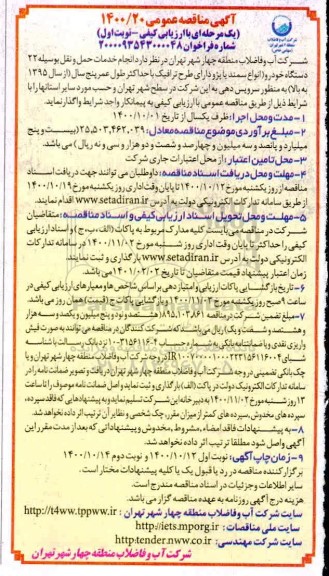 آگهی مناقصه عمومی ۱۴۰۰/۲۰
(یک مرحله ای با ارزیابی کیفی - نوبت اول)
شماره فراخوان ۲۰۰۰۰۹۳۵۴۳۰۰۰۰۴۸
شرکت آب و فاضلاب منطقه چهار شهر تهران در نظر دارد انجام خدمات حمل و نقل بوسیله ۲۲
دستگاه خودرو (انواع سمند یا پژو دارای طرح ترافیک با حداکثر طول عمر پنج سال (از سال ۱۳۹۵
به بالا) به منظور سرویس دهی به این شرکت در سطح شهر تهران و حسب مورد سایر استانها را با
شرایط ذیل از طریق مناقصه عمومی با ارزیابی کیفی به پیمانکار واجد شرایط واگذار نماید.
۱- مدت و محل اجرا: ظرف یکسال از تاریخ ۱۴۰۰/۱۰/۰۱
۲- مبلغ برآوردی موضوع مناقصه معادل: ۲۵,۵۰۳,۴۶۲,۰۳۹ (بیست و پنج
میلیارد و پانصد و سه میلیون و چهارصد و شصت و دو هزار و سی و نه ریال) می باشد.
۳- محل تامین اعتبار: از محل اعتبارات جاری شرکت
۴- مهلت و محل دریافت اسناد مناقصه: داوطلبان می توانند جهت دریافت اسناد
مناقصه از روز یکشنبه مورخ ۱۴۰۰/۱۰/۱۲ تا پایان وقت اداری روز یکشنبه مورخ ۱۴۰۰/۱۰/۱۹
از طریق سامانه تدارکات الکترونیکی دولت به آدرس www.setadiran.ir اقدام نمایند.
۵- مهلت و محل تحویل اسناد ارزیابی کیفی و اسناد مناقصه: متقاضیان
شرکت در مناقصه می بایست کلیه مدارک مربوط به پاکات (الف، ب، ج) و اسناد ارزیابی
کیفی را حداکثر تا پایان وقت اداری روز شنبه مورخ ۱۴۰۰/۱۱/۰۲ در سامانه تدارکات
الکترونیکی دولت به آدرس www.setadiran.ir بارگذاری و ثبت نمایند.
زمان اعتبار پیشنهاد قیمت متقاضیان تا تاریخ ۱۴۰۱/۰۲/۰۲ می باشد.
۶- تاریخ بازگشایی پاکات ارزیابی و امتیازدهی بر اساس شاخص ها و معیارهای ارزیابی کیفی در
ساعت ۹ صبح روز یکشنبه مورخ ۱۴۰۰/۱۱/۰۳ و بازگشایی پاکات ج (قیمت) همان روز می باشد.
۷- مبلغ تضمین شرکت در مناقصه ۸۹۵,۱۰۳,۸۶۱ (هشتصد و نود و پنج میلیون و یکصد و سه هزار
و هشتصد و شصت و یک) ریال می باشد که شرکت کنندگان در مناقصه می توانند به صورت فیش
واریزی نقدی و یا ضمانتنامه بانکی به شماره حساب نزد بانک رسالت با شناسه
شبای در وجه شرکت آب و فاضلاب منطقه چهار شهر تهران و یا
چک بانکی تضمینی در وجه شرکت آب و فاضلاب منطقه چهار شهر تهران دریافت و تصویر ضمانت نامه را در
سامانه تدارکات الکترونیک دولت در پاکت (الف) بارگذاری و ثبت نماید و اصل ضمانت نامه موصوف را تا ساعت
۱۳ روز شنبه مورخ ۱۴۰۰/۱۱/۰۲ به دبیرخانه این شرکت تسلیم نماید و به پیشنهادهای که فاقد سپرده،
سپرده های مخدوش، سپرده های کمتر از میزان مقرر، چک شخصی و نظایر آن ترتیب اثر داده نخواهد شد.
۸- به پیشنهادات فاقد امضاء، مشروط، مخدوش و پیشنهاداتی که بعد از مدت مقرر این
آگهی واصل شود مطلقا ترتیب اثر داده نخواهد شد.
۹- زمان چاپ آگهی: نوبت اول ۱۴۰۰/۱۰/۱۲ و نوبت دوم ۱۴۰۰/۱۰/۱۴
برگزار کننده مناقصه در رد یا قبول یک یا کلیه پیشنهادات مختار است.
سایر اطلاعات و جزئیات در اسناد مناقصه مندرج است.
هزینه درج آگهی روزنامه به عهده مناقصه گزار می باشد.
سایت شرکت آب و فاضلاب منطقه چهار شهر تهران : http://t4ww.tppww.ir
سایت ملی مناقصات : http://iets.mporg.ir
سایت شرکت مهندسی: http:tender.nww.co.ir
شرکت آب و فاضلاب منطقه چهار شهر تهران